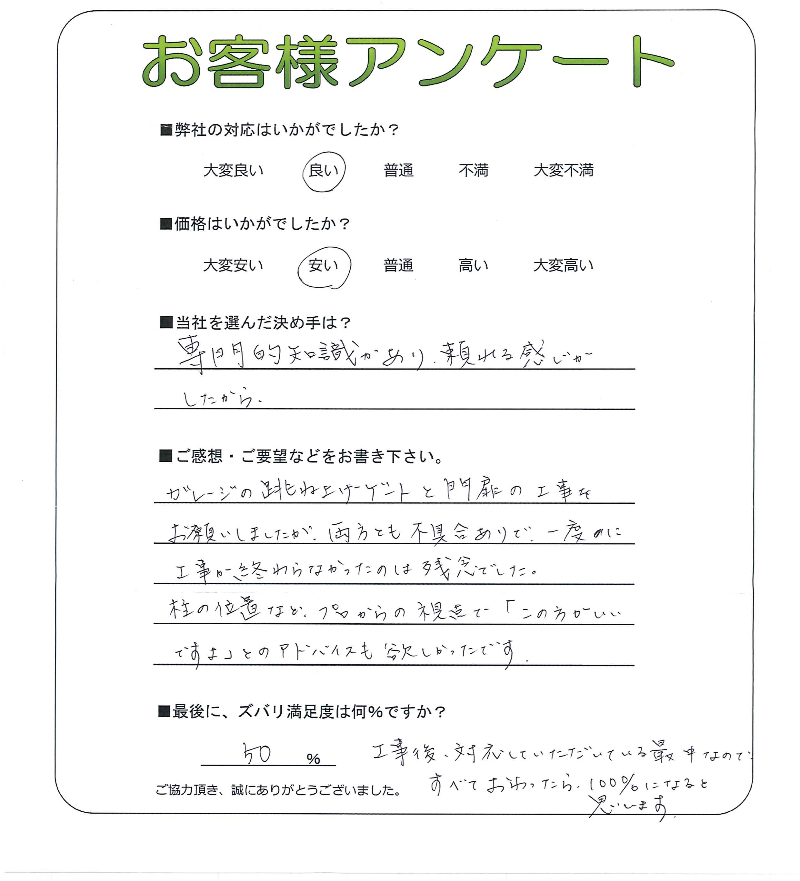 お客様アンケート
■弊社の対応はいかがでしたか？
大変良い 良い 普通 不満 大変不満
■価格はいかがでしたか？
大変安い 安い 普通 高い 大変高い
■当社を選んだ決め手は？
専門的知識があり、頼れる感じが
したから。
■ご感想・ご要望などをお書き下さい。
ガレージの跳ね上げゲートと門扉の工事を
お願いしましたが、両方とも不具合ありで、一度めに
工事が終わらなかったのは残念でした。
柱の位置など、プロからの視点で「この方がいい
ですよ」とのアドバイスも欲しかったです。
■最後に、ズバリ満足度は何％ですか？
50 ％
工事後、対応していただいている最中なので、
すべておわったら、100％になると
思います。
ご協力頂き、誠にありがとうございました。